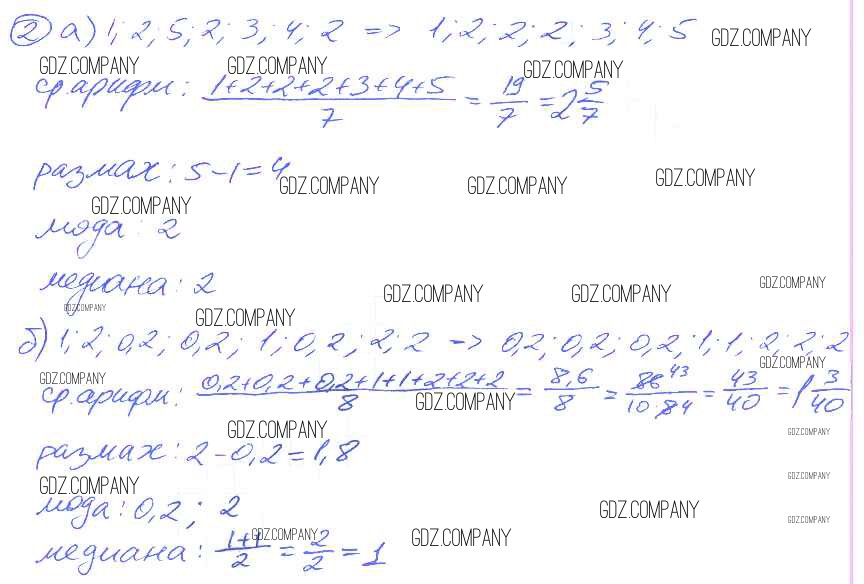 ② а) 1; 2; 5; 2; 3; 4; 2 => 1; 2; 2; 2; 3; 4; 5 GDZ.COMPANY
GDZ.COMPANY GDZ.COMPANY GDZ.COMPANY
ср. арифм: (1+2+2+2+3+4+5)/7 = 19/7 = 2 5/7
размах: 5-1=4 GDZ.COMPANY GDZ.COMPANY GDZ.COMPANY
GDZ.COMPANY
мода: 2
медиана: 2 GDZ.COMPANY GDZ.COMPANY GDZ.COMPANY
GDZ.COMPANY GDZ.COMPANY
б) 1; 2; 0,2; 0,2; 1; 0,2; 2; 2 -> 0,2; 0,2; 0,2; 1; 1; 2; 2; 2
GDZ.COMPANY GDZ.COMPANY
ср. арифм: (0,2+0,2+0,2+1+1+2+2+2)/8 = 8,6/8 = 86 43/10·84 = 43/40 = 1 3/40
GDZ.COMPANY
GDZ.COMPANY GDZ.COMPANY
размах: 2-0,2=1,8
GDZ.COMPANY GDZ.COMPANY
мода: 0,2; 2 GDZ.COMPANY GDZ.COMPANY
GDZ.COMPANY GDZ.COMPANY
медиана: (1+1)/2 = 2/2 = 1